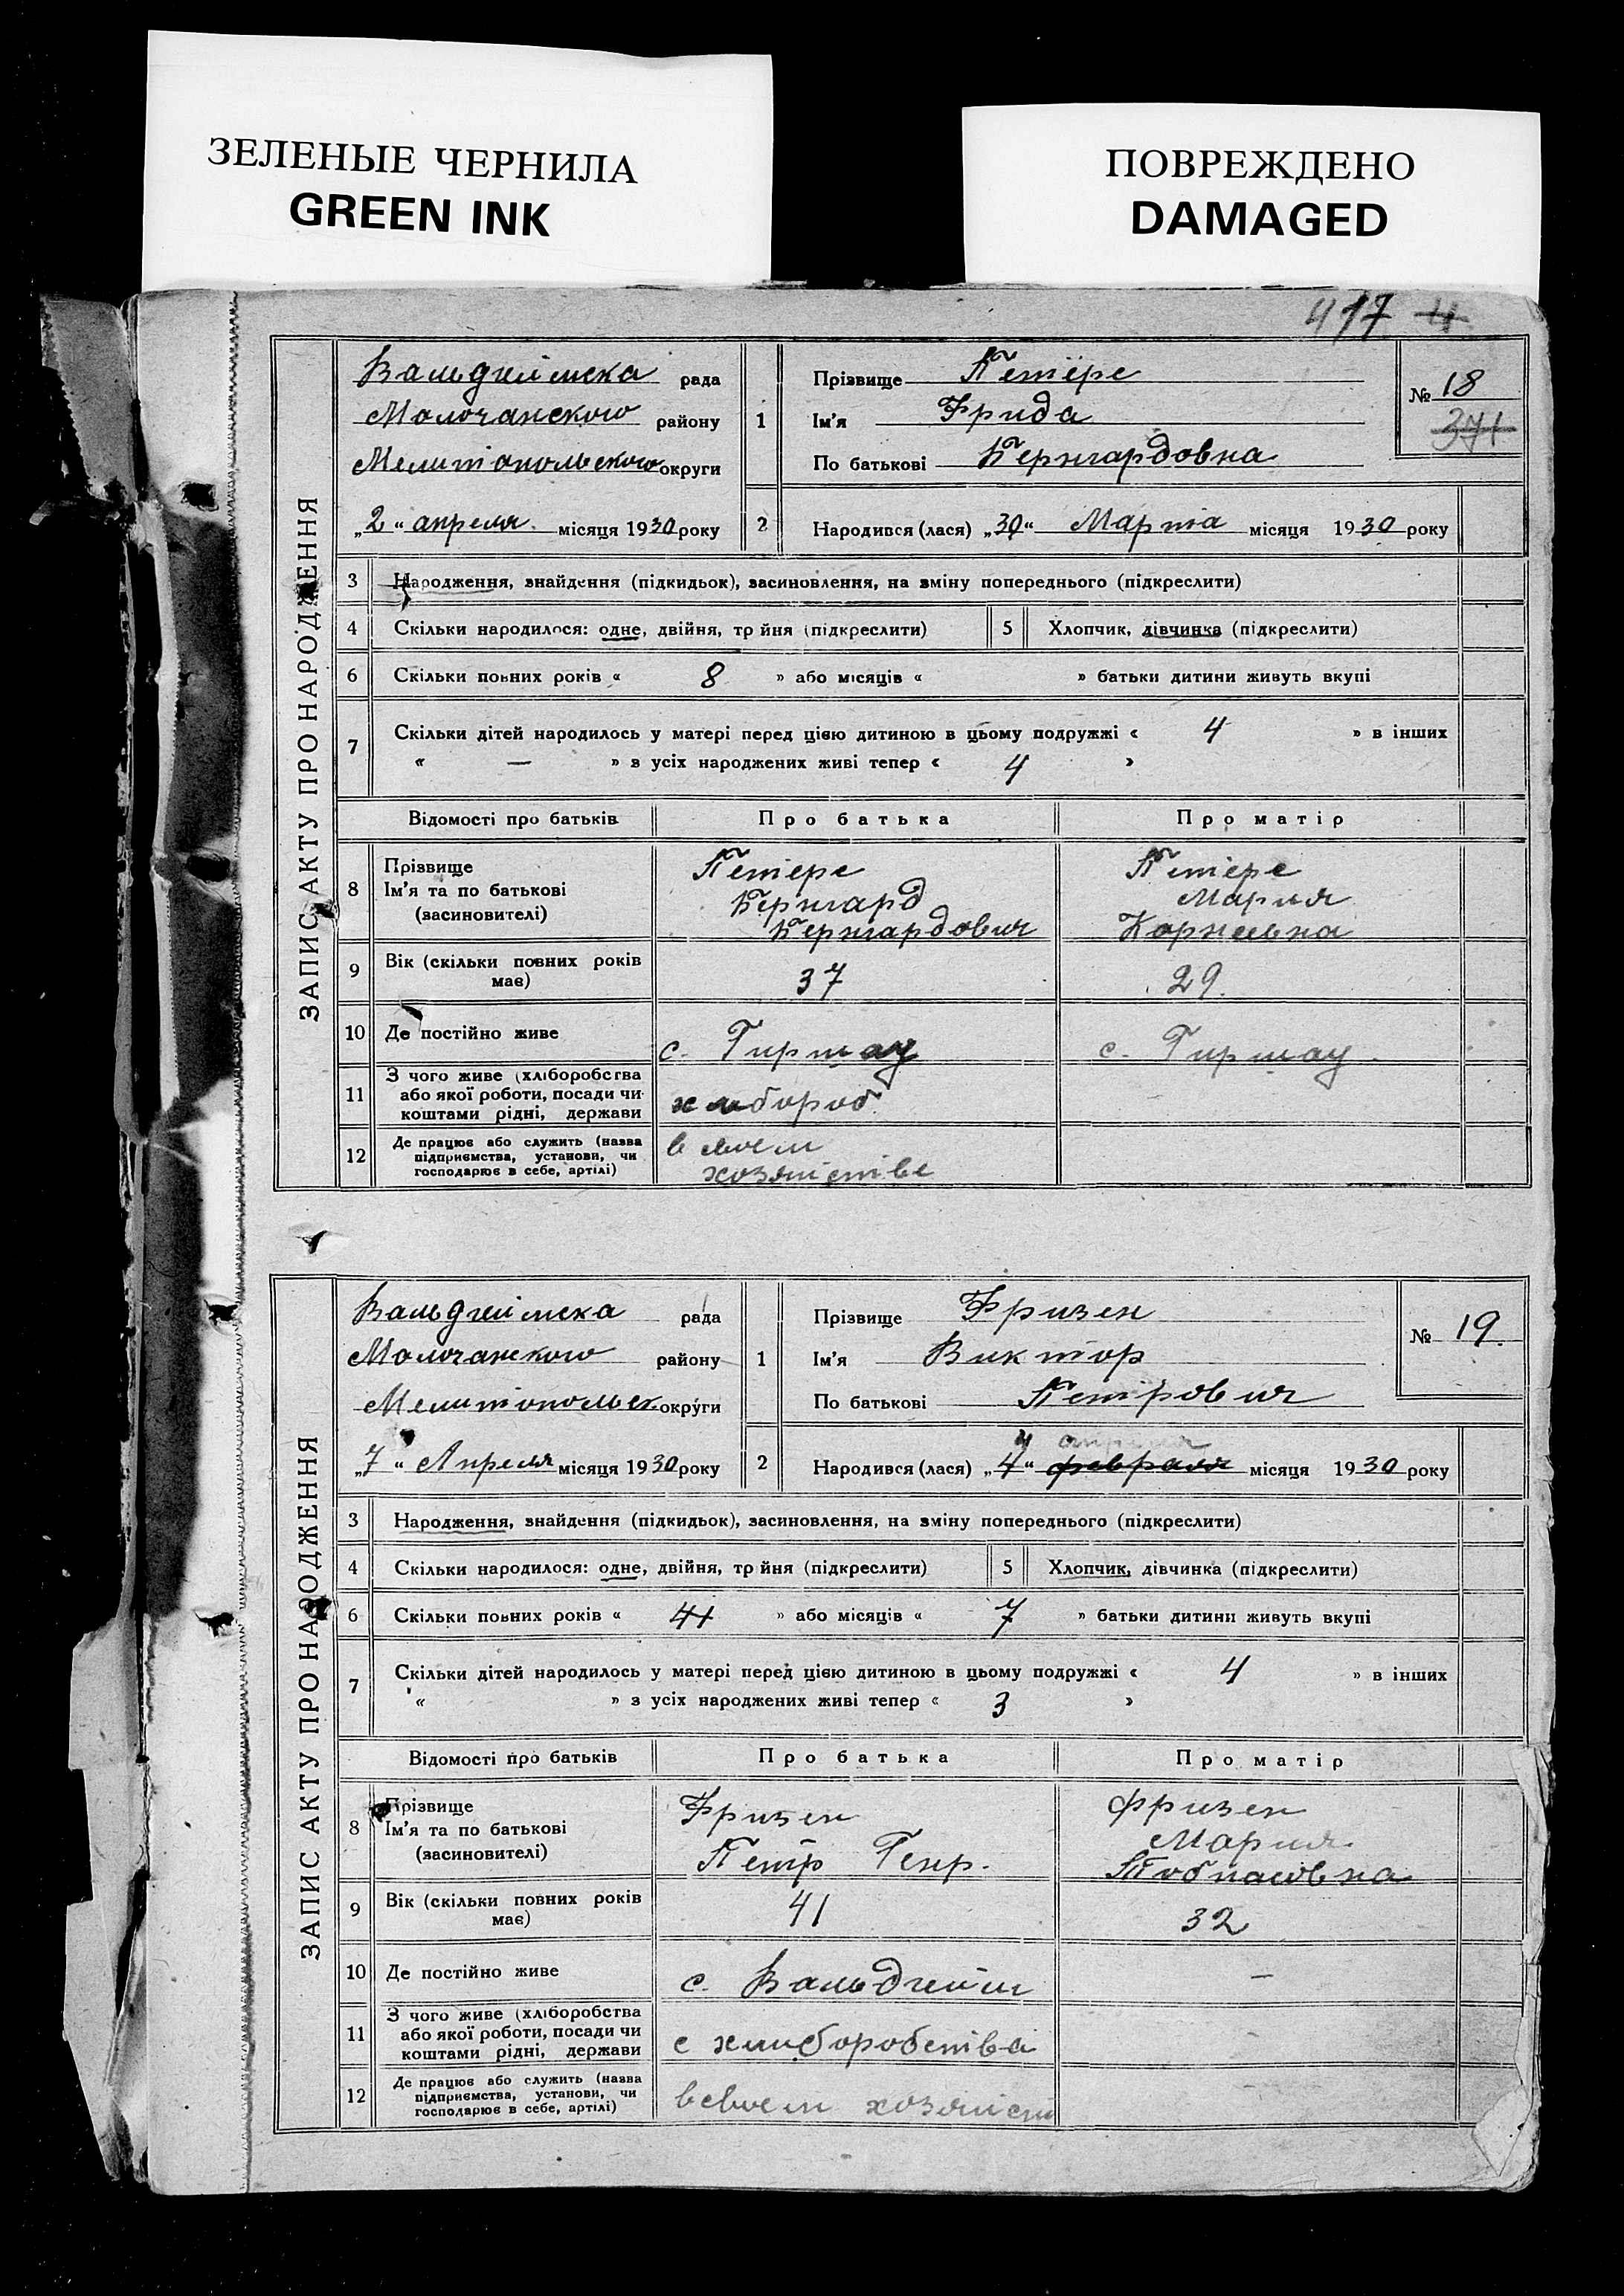 ЗЕЛЕНЫЕ ЧЕРНИЛА
GREEN INK
ПОВРЕЖДЕНО
DAMAGED
417 4
ЗАПИС АКТУ ПРО НАРОДЖЕННЯ
Вальдгеймска рада
Молочанского району
Мелитопольского округи
„2“ апреля місяця 1930 року
1
Прізвище Петерс
Ім'я Фрида
По батькові Бернгардовна
№ 18
371
2 Народився (лася) „30“ Марта місяця 1930 року
3 Народження, знайдення (підкидьок), засиновлення, на зміну попереднього (підкреслити)
4 Скільки народилося: одне, двійня, трійня (підкреслити) 5 Хлопчик, дівчинка (підкреслити)
6 Скільки повних років « 8 » або місяців « » батьки дитини живуть вкупі
7 Скільки дітей народилось у матері перед цією дитиною в цьому подружжі « 4 » в інших
« — » з усіх народжених живі тепер « 4 »
Відомості про батьків Про батька Про матір
8 Прізвище
Ім'я та по батькові
(засиновителі)
Петерс
Бернгард
Бернгардович
Петерс
Мария
Корнеевна
9 Вік (скільки повних років має) 37 29
10 Де постійно живе с. Гиршау с. Гиршау
11 З чого живе (хліборобства
або якої роботи, посади чи
коштами рідні, держави
хлибороб
12 Де працює або служить (назва
підприємства, установи, чи
господарює в себе, артілі)
в своем
хозяйстве
ЗАПИС АКТУ ПРО НАРОДЖЕННЯ
Вальдгеймска рада
Молочанского району
Мелитопольск округи
„7“ Апреля місяця 1930 року
1
Прізвище Фризен
Ім'я Виктор
По батькові Петрович
№ 19.
2 Народився (лася) „4“ февраля апреля місяця 1930 року
3 Народження, знайдення (підкидьок), засиновлення, на зміну попереднього (підкреслити)
4 Скільки народилося: одне, двійня, трійня (підкреслити) 5 Хлопчик, дівчинка (підкреслити)
6 Скільки повних років « » або місяців « 7 » батьки дитини живуть вкупі
7 Скільки дітей народилось у матері перед цією дитиною в цьому подружжі « 4 » в інших
« » з усіх народжених живі тепер « 3 »
Відомості про батьків Про батька Про матір
8 Прізвище
Ім'я та по батькові
(засиновителі)
Фризен
Петр Генр.
Фризен
Мария
Тобиасовна
9 Вік (скільки повних років має) 41 32
10 Де постійно живе с. Вальдгейм —
11 З чого живе (хліборобства
або якої роботи, посади чи
коштами рідні, держави
с хлиборобства
12 Де працює або служить (назва
підприємства, установи, чи
господарює в себе, артілі)
в своем хозяйст